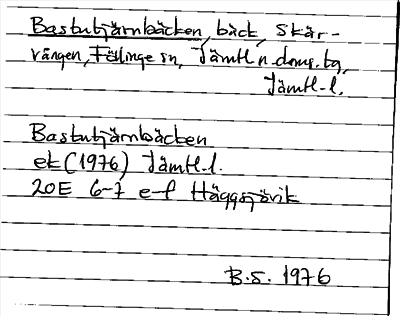 Bastutjärnbäcken, bäck, Skär-
vången, Föllinge sn, Jämtl n. doms. tg,
Jämtl. l.
Bastutjärnbäcken
ek (1976) Jämtl. l.
20E 6-7 e-f Häggsjövik
B.S. 1976